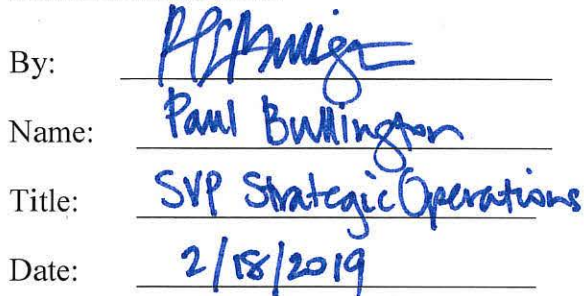 By:
Name: Paul Bullington
Title: SVP Strategic Operations
Date: 2/18/2019